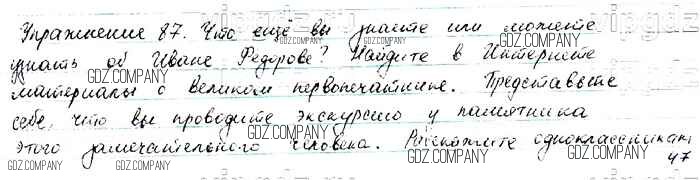 Упражнение 87. Что ещё вы знаете или можете
узнать об Иване Федорове? Найдите в Интернете
материалы о великом первопечатнике. Представьте
себе, что вы проводите экскурсию у памятника
этого замечательного человека. Расскажите одноклассникам
47
GDZ.COMPANY
GDZ.COMPANY
GDZ.COMPANY
GDZ.COMPANY
GDZ.COMPANY
GDZ.COMPANY
GDZ.COMPANY
GDZ.COMPANY
GDZ.COMPANY
GDZ.COMPANY